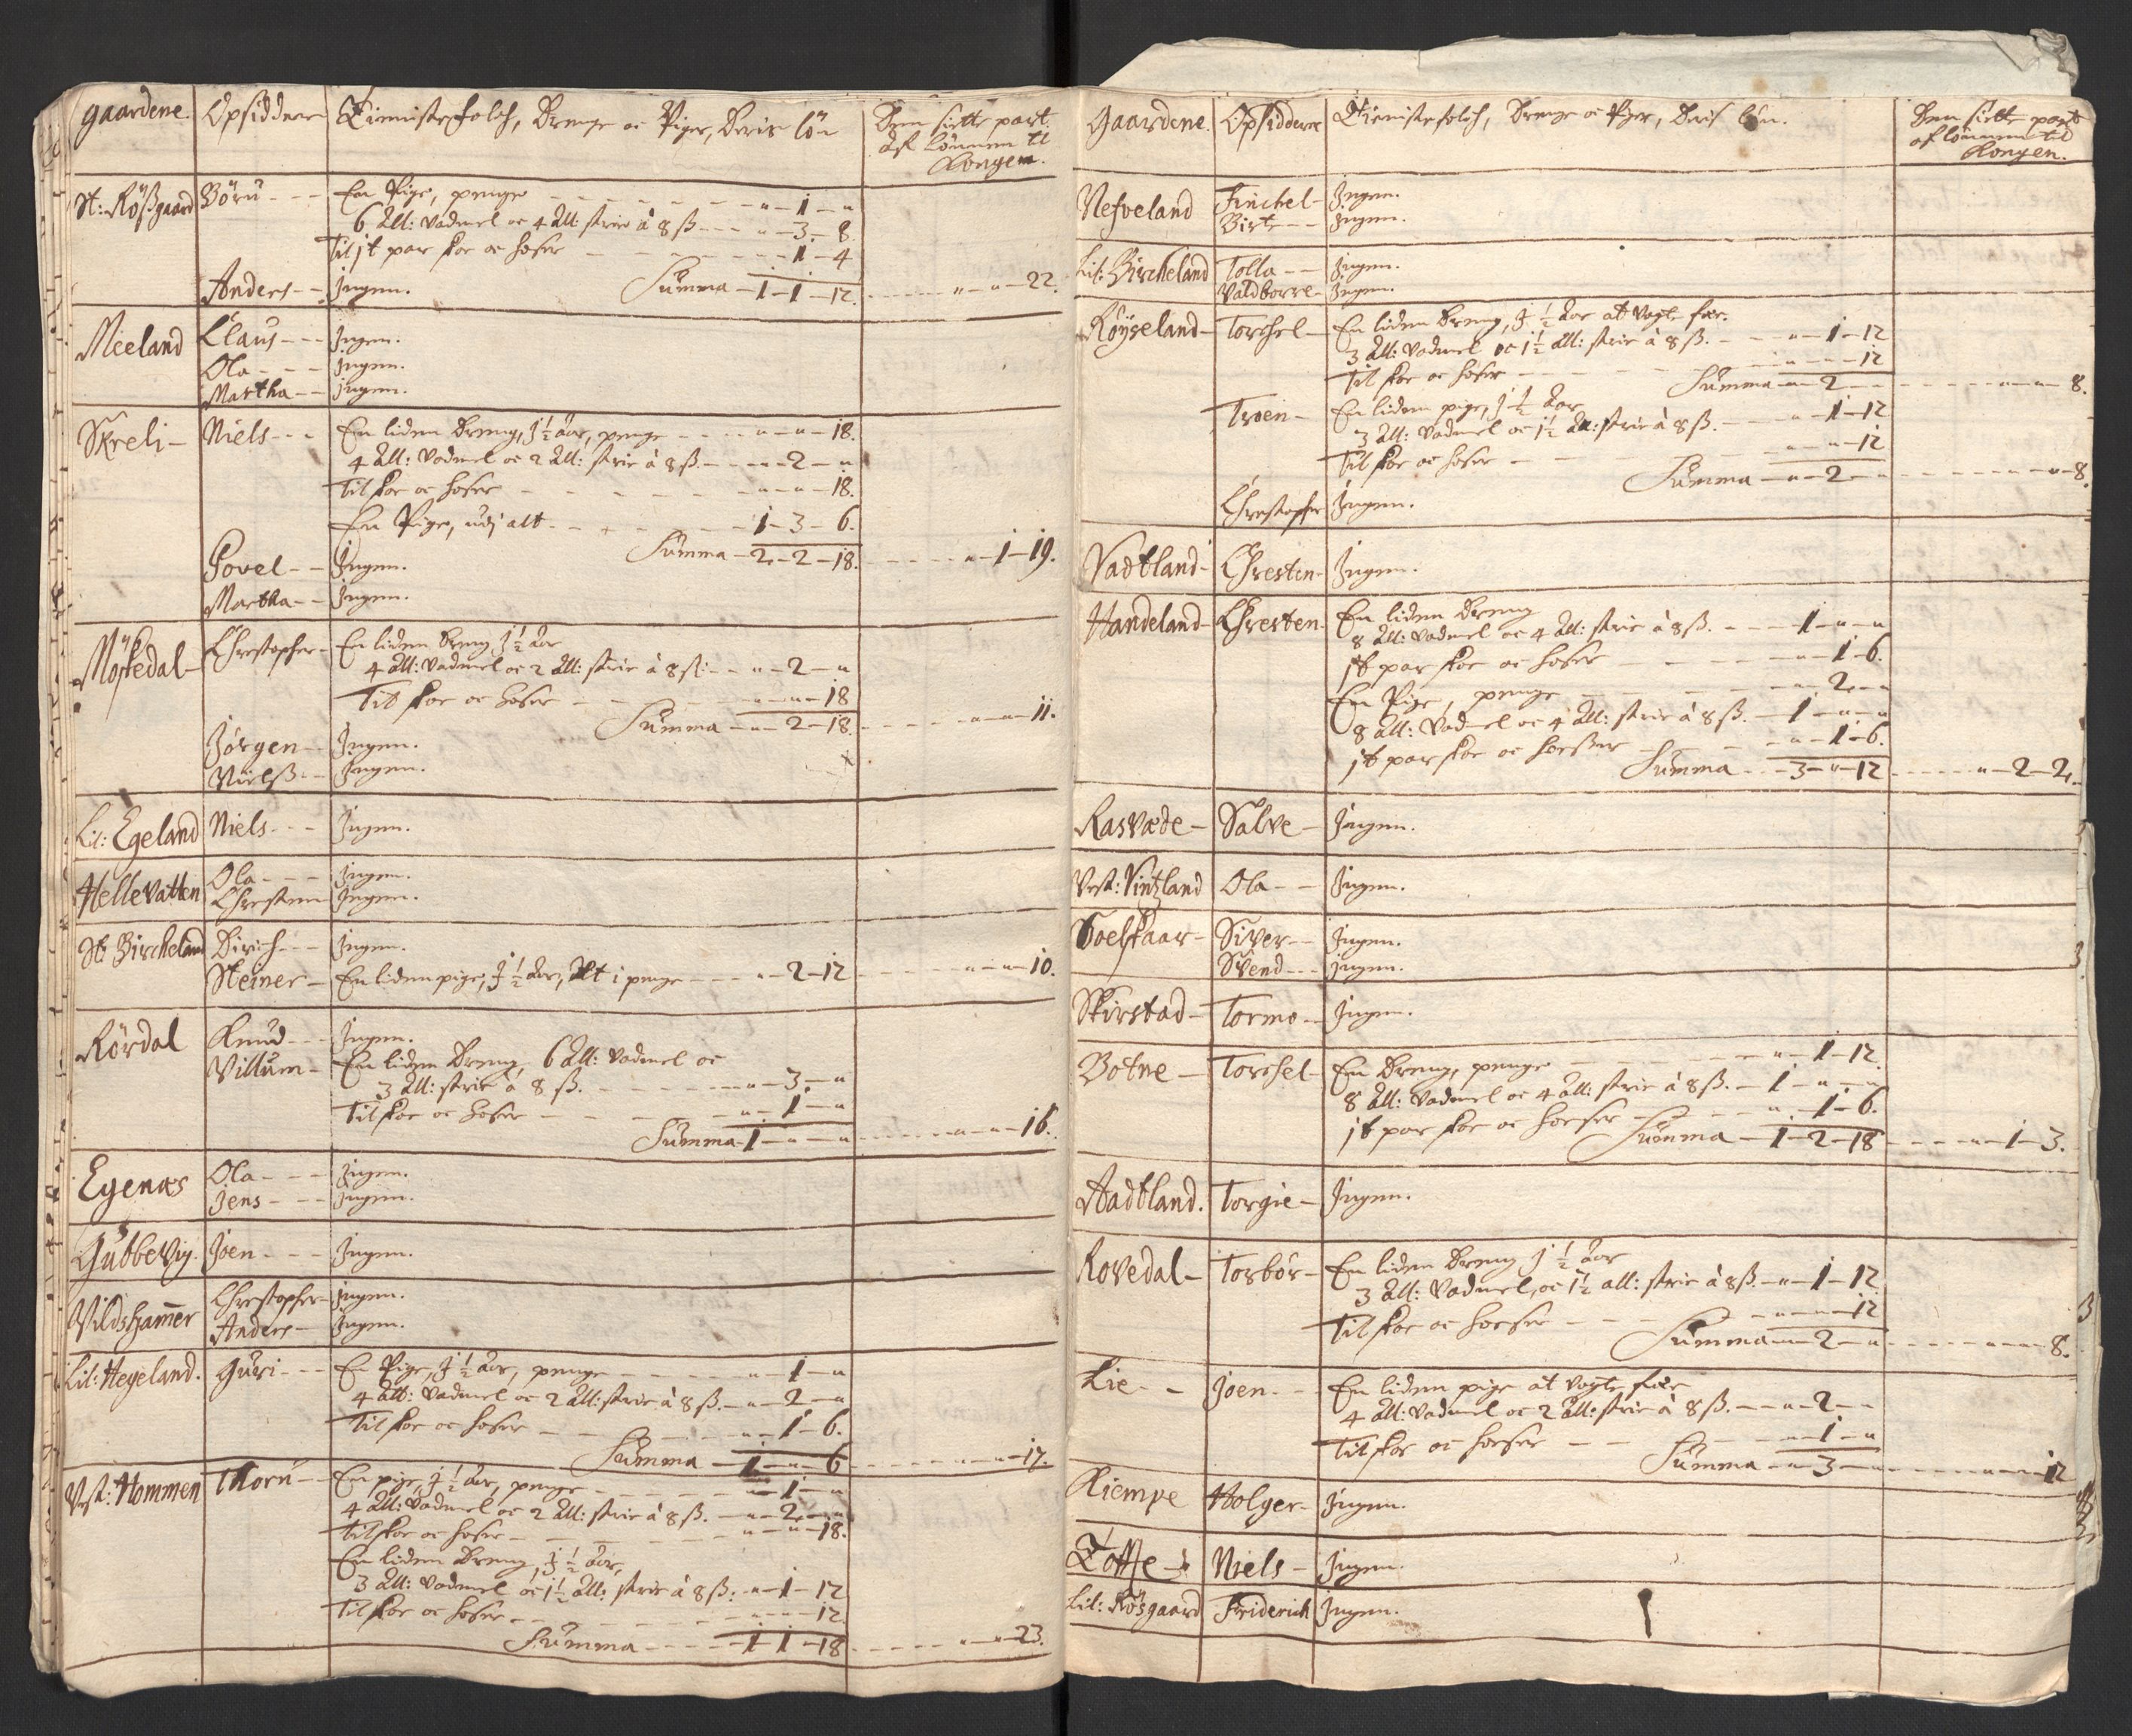 gaardene. Opsiddere Tienistefolch, Drenge oc Piger, Deris lön Den siette part af lönnen til Kongen.
St: Rößgaard Börü - - - En Pige, penge - - - " - 1 - "
6 All: vadmel oc 4 All: strie à 8 ß - - - " - 3 - 8.
Til jt par skoe oc hoser - - - 1 - 4
Anders - - Jngen. Summa - 1 - 1 - 12. - - - " - " - 22.
Meeland Claus - - - Jngen.
Ola - - - Jngen.
Martha - - Jngen.
Skreli - Niels - - - En liden Dreng, J ½ Aar, penge - - - " - " - 18.
4 All: vadmel oc 2 All: strie à 8 ß. - - - " - 2 - "
Til skoe oc hoser - - - " - " - 18.
En Pige, udj alt - - - 1 - 3 - 6.
Povel - - Jngen. Summa - 2 - 2 - 18. - - - " - 1 - 19.
Martha - - Jngen.
Möskedal - Christopher - En liden Dreng J ½ Aar
4 All: vadmel oc 2 All: strie à 8 ß: - - " - 2 - "
Til skoe oc hoser - - - " - " - 18
Summa - " - 2 - 18. - - - " - " - 11.
Jörgen - - Jngen.
Nielß - - Jngen.
Lil: Egeland Niels - - - Jngen.
Hellevatten Ola - - - Jngen.
Christen Jngen.
St: Bircheland Dirich - - - Jngen.
Steiner - En liden pige, J ½ Aar, Alt i penge - - - " - 2 - 12 - - - " - " - 10.
Rördal Knud - - - Jngen.
Villum - En liden Dreng, 6 All: vadmel oc
3 All: strie à 8 ß. - - - " - 3 - "
Til skoe oc hoser - - - " - 1 - "
Summa - 1 - " - " - - - " - " - 16.
Egenæs Ola - - - Jngen.
Jens - - - Jngen.
Gubbevig. Joen - - - Jngen.
Vildshammer Christopher - Jngen.
Anders - Jngen.
Lil: Hegeland. Guri - - - En Pige, J ½ Aar, penge - - - " - 1 - "
4 All: vadmel oc 2 All: strie à 8 ß. - " - 2 - "
Til skoe oc hoser - - - " - 1 - 6.
Summa - 1 - " - 6 - - - " - " - 17.
Vest: Hommen Thorü - - En pige, J ½ Aar, penge - - - " - 1 - "
4 All: vadmel oc 2 All: strie à 8 ß. - " - 2 - "
Til skoe oc hoser - - - " - " - 18.
En liden Dreng, J ½ Aar,
3 All: vadmel oc 1½ All: strie à 8 ß: - " - 1 - 12
Til skoe oc hoser - - - " - " - 12.
Summa - - - 1 - 1 - 18 - - - " - " - 23.
Gaardene. Opsiddere Tienistefolch, Drenge oc Piger, Deris lön. Den siette part af lönnen til Kongen.
Nefveland Finchel - Jngen.
Birte - - Jngen.
Lil: Bircheland Tolla - - Jngen.
Valdborre - Jngen.
Röyseland - Torchel - En liden Dreng, J ½ Aar at vogte fæe.
3 All: vadmel oc 1½ All: strie à 8 ß. - - - " - 1 - 12
Til skoe oc hoser - - - " - " - 12
Summa - " - 2 - " - - - " - " - 8.
Troen - En liden pige, J ½ Aar
3 All: vadmel oc 1½ All: strie à 8 ß. - - - " - 1 - 12
Til skoe oc hoser - - - " - " - 12
Summa - " - 2 - " - - - " - " - 8.
Christopher Jngen.
Vadtland - Christen - Jngen.
Handeland - Chresten - En liden Dreng
8 All: vadmel oc 4 All: strie à 8 ß. - - - 1 - " - "
jt par skoe oc hoser - - - " - 1 - 6.
En Pige, penge - - - " - 2 - "
8 All: vadmel oc 4 All: strie à 8 ß. - 1 - " - "
jt par skoe oc hoeßer - - - " - 1 - 6.
Summa - - 3 - " - 12 - - - " - 2 - 2.
Rasvæde - Salve - Jngen.
Vest: Vintzland Ola - - Jngen.
Soelskaar - Siver - - Jngen.
Svend - - Jngen.
Skirstad - Tormo - Jngen.
Botne - Torchel - En Dreng, penge - - - " - 1 - 12.
8 All: vadmel oc 4 All: strie à 8 ß. - 1 - " - "
jt par skoe oc hoeser - - - " - 1 - 6.
Summa - 1 - 2 - 18 - - - " - 1 - 3.
Aadtland. Torgie - Jngen.
Rovedal - Torbör - En liden Dreng J ½ Aar
3 All: vadmel, oc 1½ all: strie à 8 ß. - " - 1 - 12.
Til skoe oc hoeser - - - " - " - 12
Summa - " - 2 - " - - - " - " - 8.
Lie - - Joen - - En liden pige at vogte fæe
4 All: vadmel oc 2 All: strie à 8 ß. - - " - 2 - "
Til skoe oc hoeser - - - " - 1 - "
Summa - " - 3 - " - - - " - " - 12
Kiempe Holger - Jngen.
Toffte - Niels - Jngen.
Lil: Rösgaard Friderich Jngen.